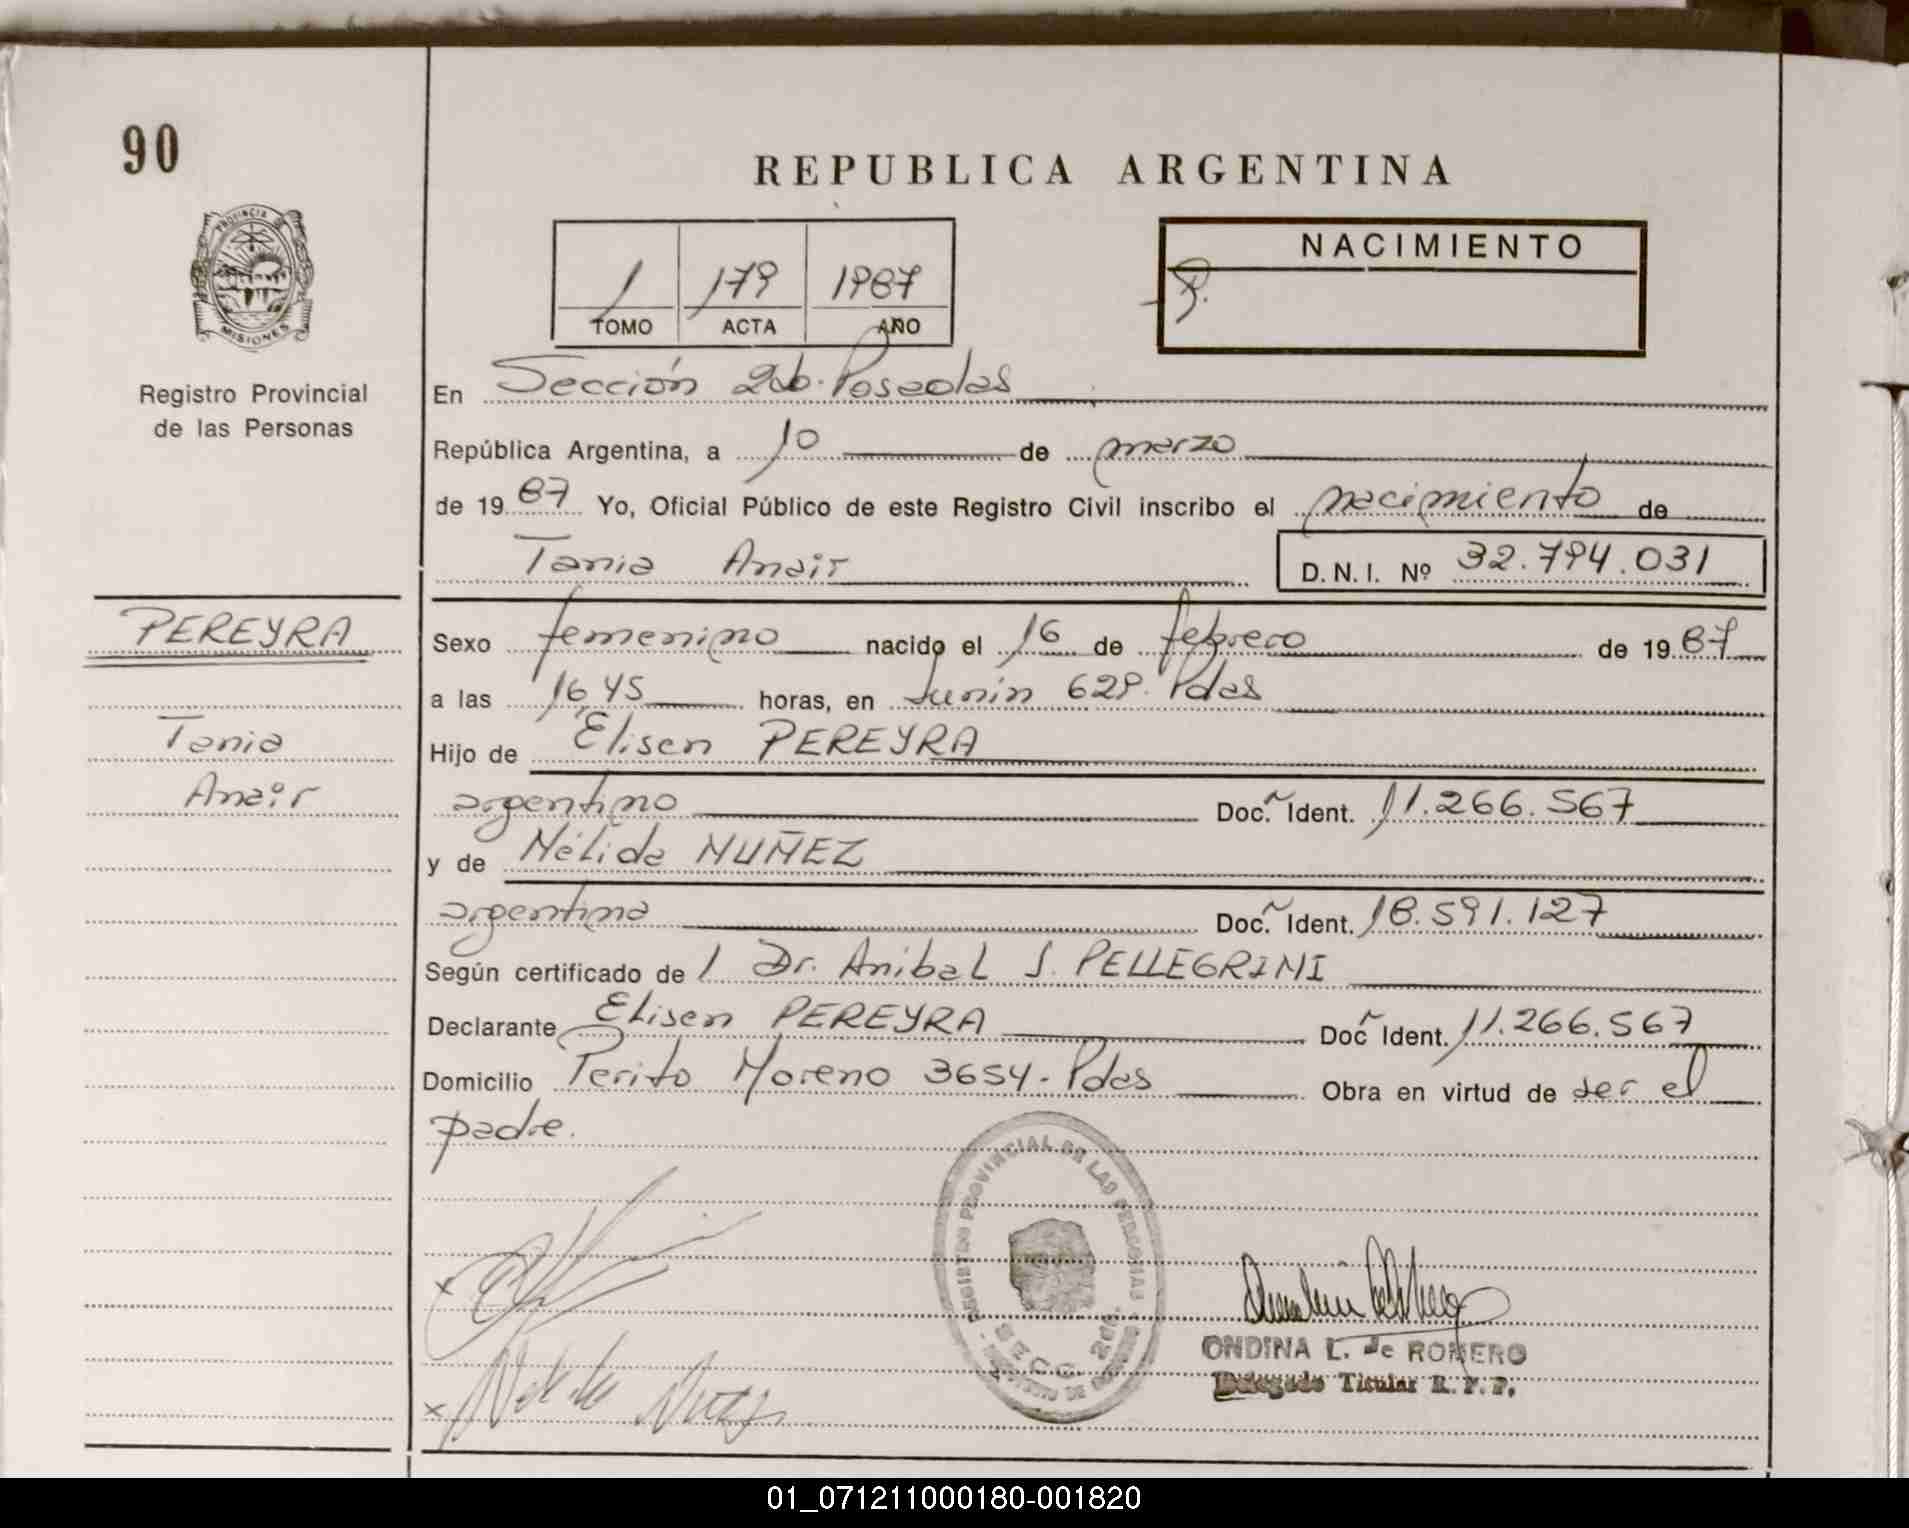 90
REPUBLICA ARGENTINA
PROVINCIA DE
MISIONES
Registro Provincial
de las Personas
1 179 1987
TOMO ACTA AÑO
NACIMIENTO
En Sección 2da. Posadas
República Argentina, a 10 de marzo
de 1987 Yo, Oficial Público de este Registro Civil inscribo el nacimiento de
Tania Anair D.N.I. Nº 32.794.031
PEREYRA
Tania
Anair
Sexo femenino nacido el 16 de febrero de 1987
a las 16,45 horas, en Junín 629. Pdas
Hijo de Elisen PEREYRA
argentino Doc. Ident. 11.266.567
y de Nélida NUÑEZ
argentina Doc. Ident. 18.591.127
Según certificado de 1 Dr. Anibal S. PELLEGRINI
Declarante Elisen PEREYRA Doc Ident. 11.266.567
Domicilio Perito Moreno 3654. Pdas Obra en virtud de ser el
padre.
REGISTRO PROVINCIAL DE LAS PERSONAS
SECC. 2da.
ONDINA L. de ROMERO
Delegado Titular R. P. P.
01_071211000180-001820